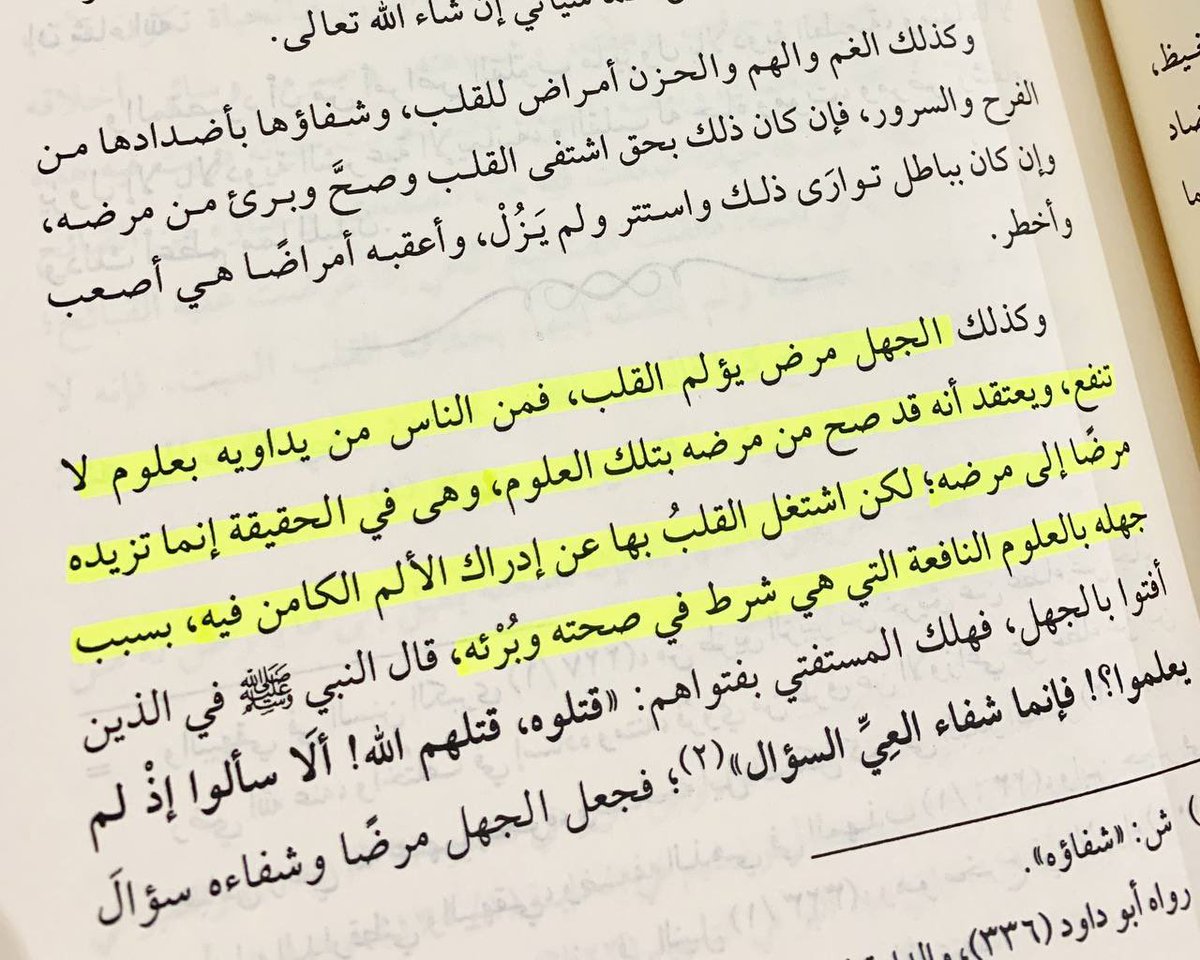 سيأتي إن شاء الله تعالى.
وكذلك الغم والهم والحزن أمراض للقلب، وشفاؤها بأضدادها من
الفرح والسرور، فإن كان ذلك بحق اشتفى القلب وصحَّ وبرئ من مرضه،
وإن كان بباطل توارَى ذلك واستتر ولم يَزُلْ، وأعقبه أمراضًا هي أصعب
وأخطر.
وكذلك الجهل مرض يؤلم القلب، فمن الناس من يداويه بعلوم لا
تنفع، ويعتقد أنه قد صح من مرضه بتلك العلوم، وهى في الحقيقة إنما تزيده
مرضًا إلى مرضه؛ لكن اشتغل القلبُ بها عن إدراك الألم الكامن فيه، بسبب
جهله بالعلوم النافعة التي هي شرط في صحته وبُرْئه، قال النبي ﷺ في الذين
أفتوا بالجهل، فهلك المستفتي بفتواهم: «قتلوه، قتلهم الله! ألَا سألوا إذْ لم
يعلموا؟! فإنما شفاء العِيِّ السؤال»(٢)؛ فجعل الجهل مرضًا وشفاءه سؤالَ
ش: «شفاؤه».
رواه أبو داود (٣٣٦)،